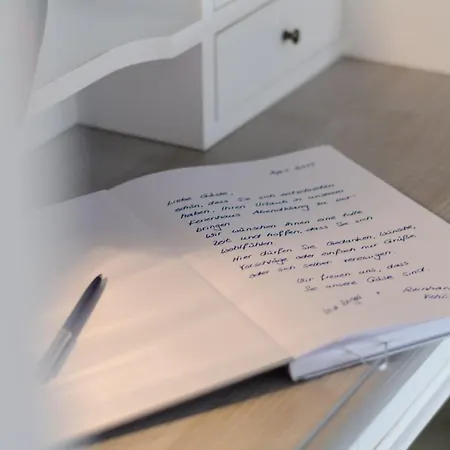 Liebe Gäste,
schön, dass Sie sich entschieden
haben, Ihren Urlaub in unserem
Ferienhaus Abendklang zu ver-
bringen.
Wir wünschen Ihnen eine tolle
Zeit und hoffen, dass Sie sich
wohlfühlen.
Hier dürfen Sie Gedanken, Wünsche,
Vorschläge oder einfach nur Grüße
oder sich selber verewigen.
Wir freuen uns, dass
Sie unsere Gäste sind.